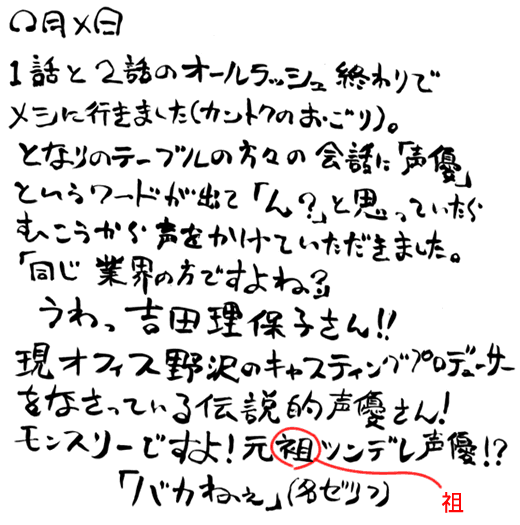 〇月×日
1話と2話のオールラッシュ終わりで
メシに行きました(カントクのおごり)。
となりのテーブルの方々の会話に「声優」
というワードが出て「ん?」と思っていたら
むこうから声をかけていただきました。
「同じ業界の方ですよね?」
うわっ吉田理保子さん!!
現オフィス野沢のキャスティングプロデューサー
をなさっている伝説的声優さん!
モンスリーですよ!元祖ツンデレ声優!?
「バカねぇ」(名ゼリフ)
祖